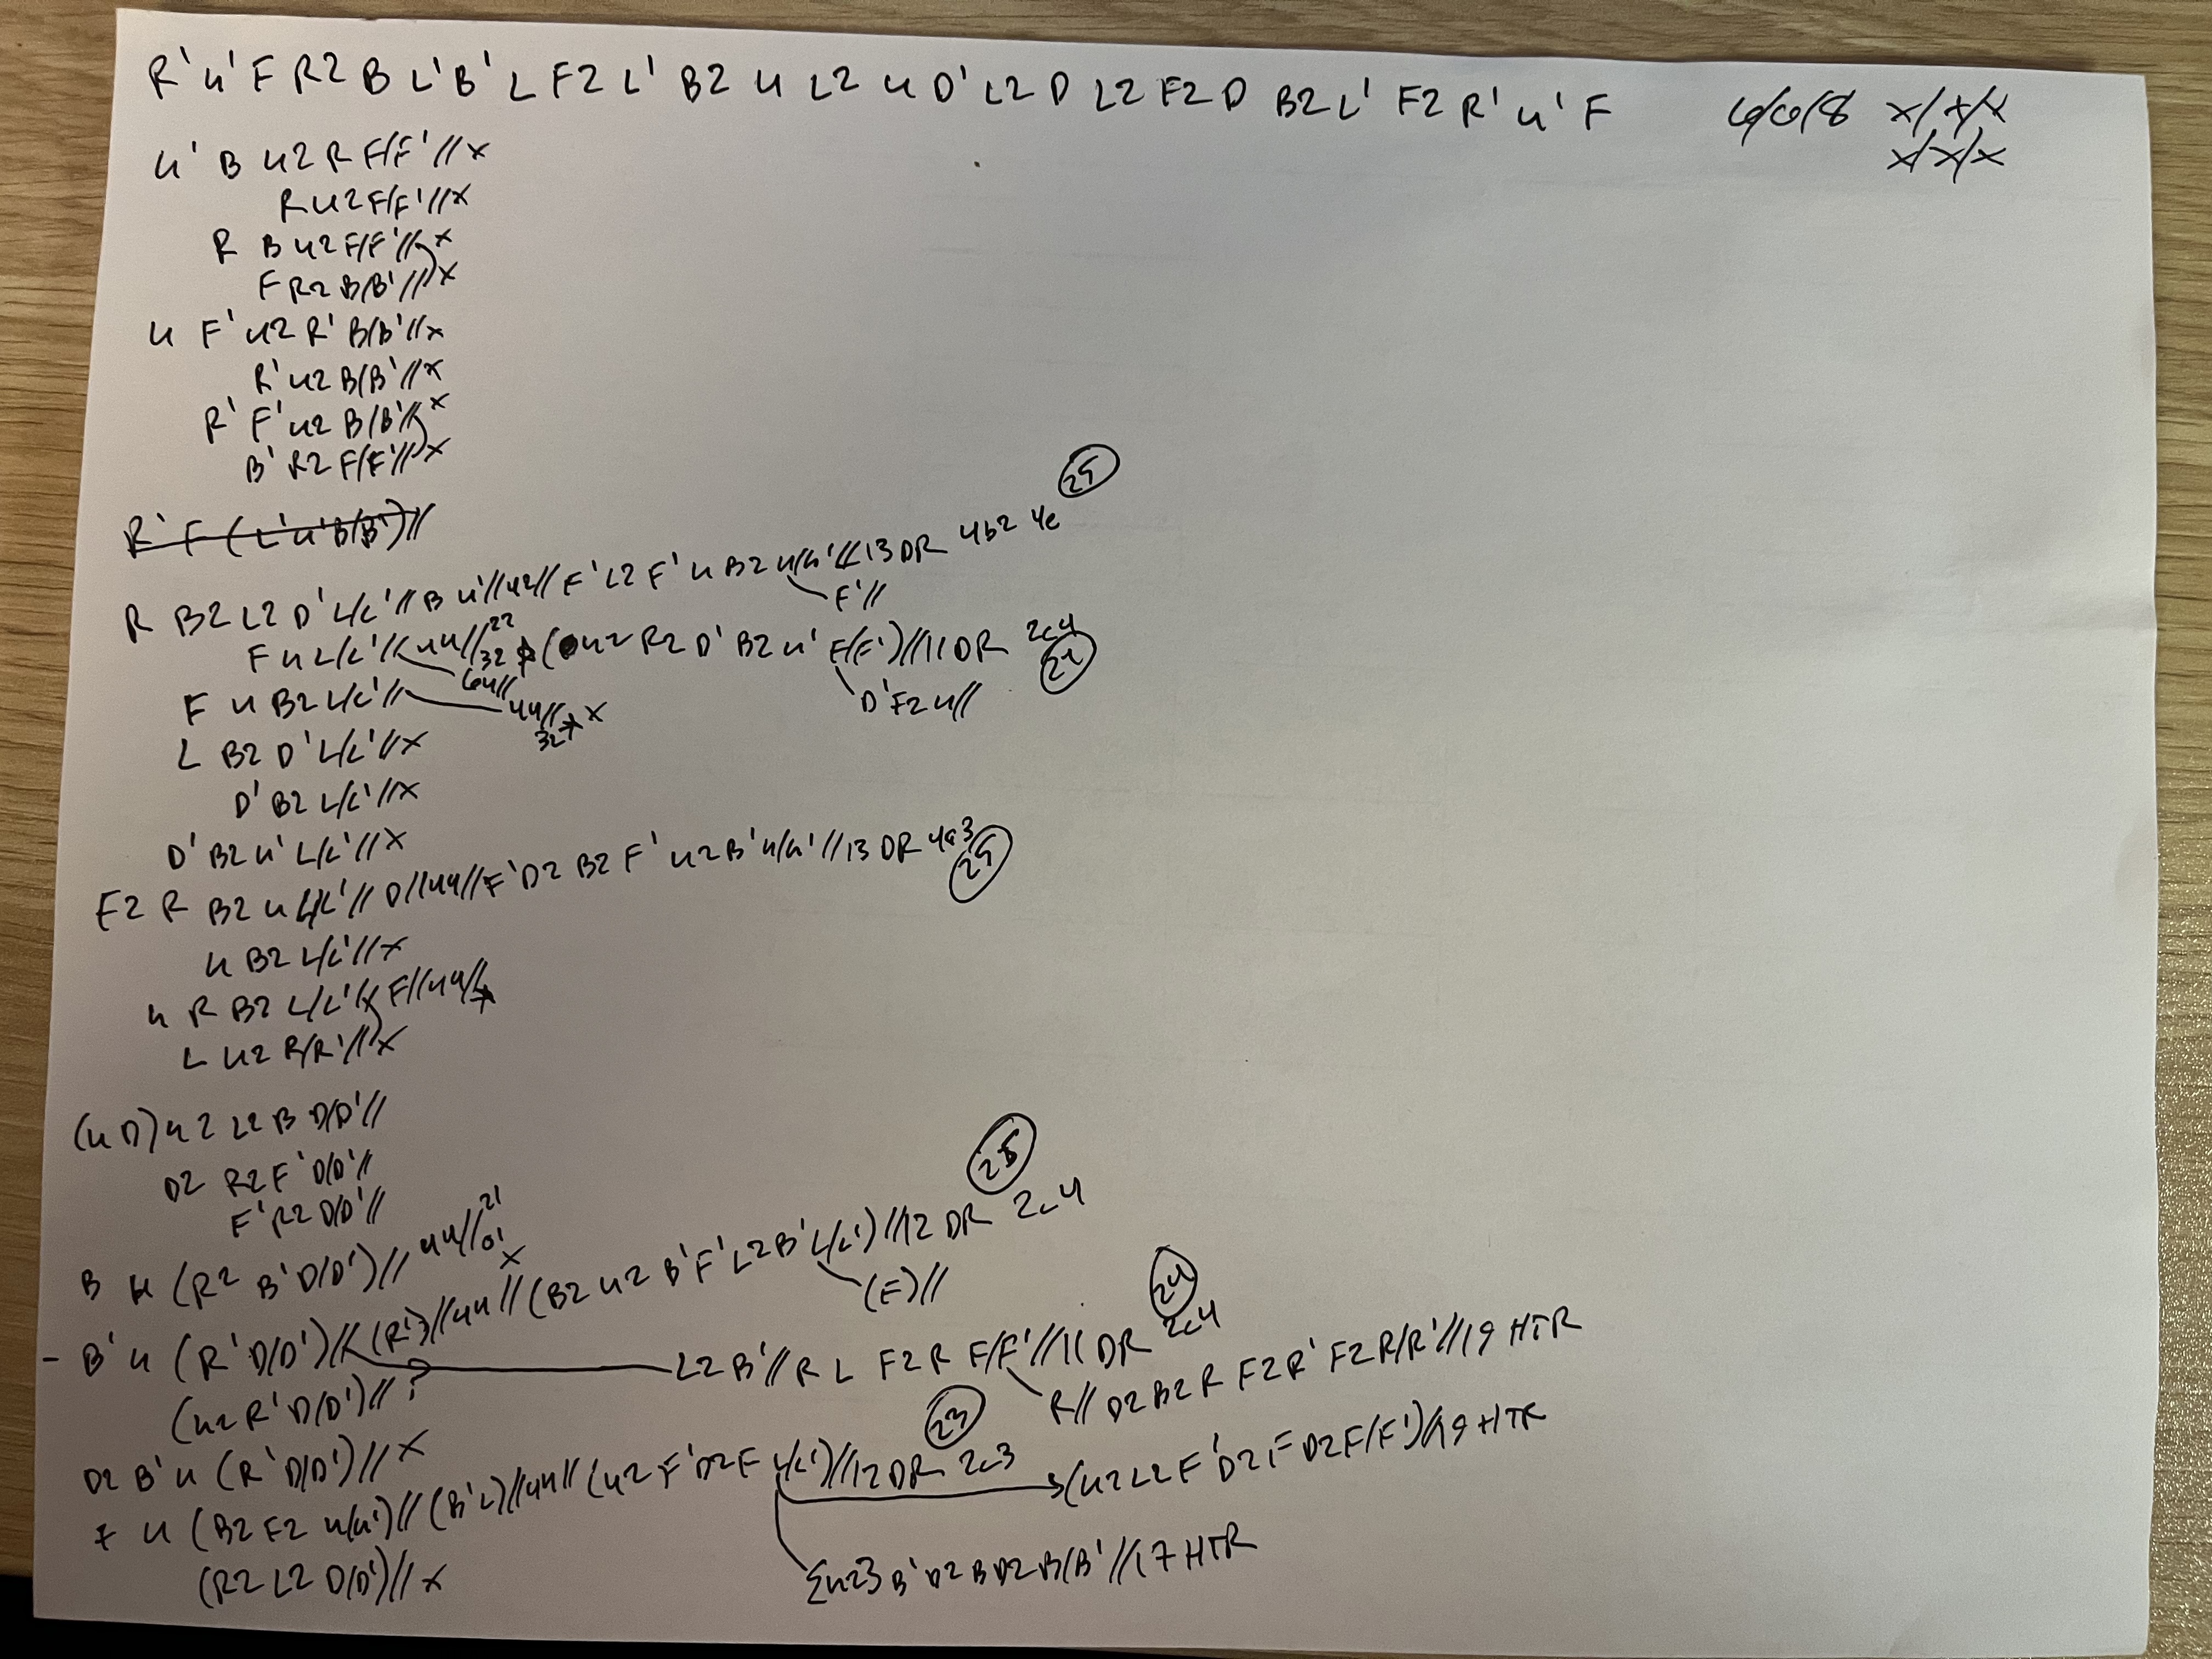 R' U' F R2 B L' B' L F2 L' B2 U L2 U D' L2 D L2 F2 D B2 L' F2 R' U' F 6/6/8 x/x/x
x/x/x
U' B U2 R F/F' // x
R U2 F/F' // x
R B U2 F/F' // x
F R2 B/B' // x
U F' U2 R' B/B' // x
R' U2 B/B' // x
R' F' U2 B/B' // x
B' R2 F/F' // x
R' F (L' U' B/B') //
R B2 L2 D' L/L' // B U' // 44 // F' L2 F' U B2 U/U' // 13 DR 4b2 4e 25
F' //
F U L/L' // 44 // 22 32 (U2 R2 D' B2 U' F/F') // 11 DR 2c4
64 // D' F2 U //
F U B2 L/L' // 44 // 32 x
L B2 D' L/L' // x
D' B2 L/L' // x
D' B2 U' L/L' // x
F2 R B2 U L/L' // D // 44 // F' D2 B2 F' U2 B' U/U' // 13 DR 4a3 25
U B2 L/L' // x
U R B2 L/L' // F // 44 //
L U2 R/R' // x
(U D) U2 L2 B D/D' //
D2 R2 F' D/D' //
F' R2 D/D' //
B U (R2 B' D/D') // 44 // 21 01 x
- B' U (R' D/D') // (R') // 44 // (B2 U2 B' F' L2 B' L/L') // 12 DR 2c4
(F) //
L2 B' // R L F2 R F/F' // 11 DR 2c4 24
(U2 R' D/D') // ? R // D2 B2 R F2 R' F2 R/R' // 19 HTR
D2 B' U (R' D/D') // x
* U (B2 F2 U/U') // (B' L) // 44 // (U2 F' D2 F L/L') // 12 DR 2c3 23 (U2 L2 F' D2 F D2 F/F') // 19 HTR
(R2 L2 D/D') // x {U2} B' D2 B D2 B/B' // 17 HTR